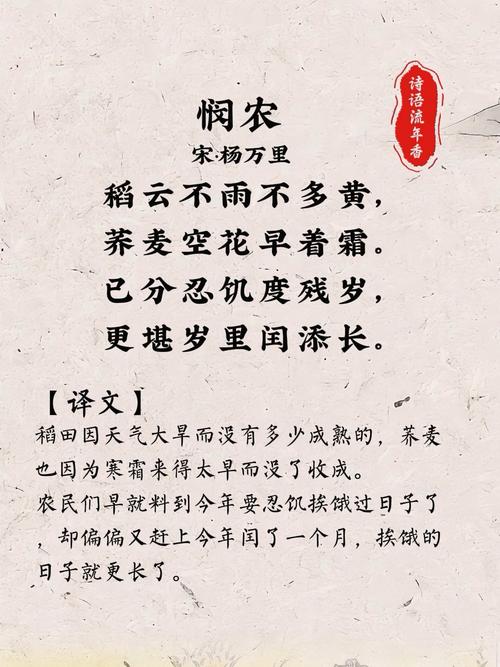 诗语流年香
悯农
宋·杨万里
稻云不雨不多黄，
荞麦空花早着霜。
已分忍饥度残岁，
更堪岁里闰添长。
【译文】
稻田因天气大旱而没有多少成熟的，荞麦
也因为寒霜来得太早而没了收成。
农民们早就料到今年要忍饥挨饿过日子了
，却偏偏又赶上今年闰了一个月，挨饿的
日子就更长了。